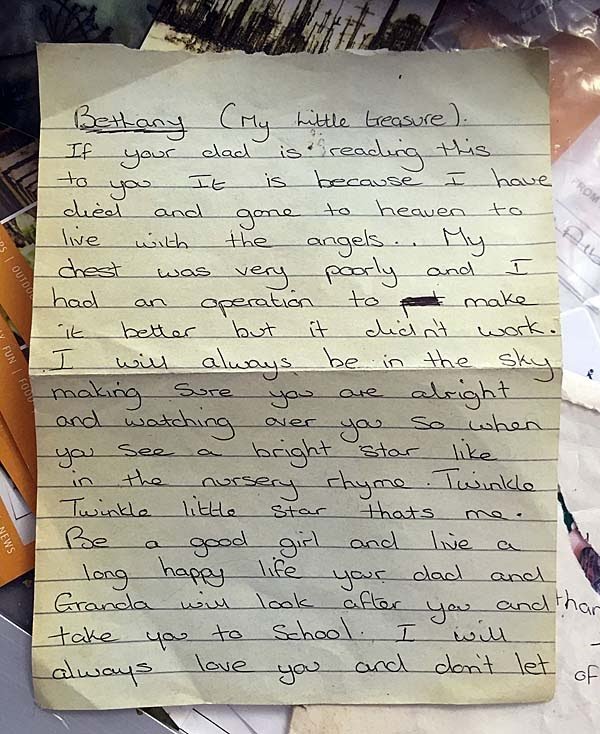 Bethany (My little treasure).
If your dad is reading this
to you It is because I have
died and gone to heaven to
live with the angels... My
chest was very poorly and I
had an operation to make
it better but it didn't work.
I will always be in the sky
making sure you are alright
and watching over you so when
you see a bright star like
in the nursery rhyme. Twinkle
Twinkle little star thats me.
Be a good girl and live a
long happy life your dad and
Granda will look after you and
take you to School. I will
always love you and don't let
FUN | FOOD
NEWS
than
of